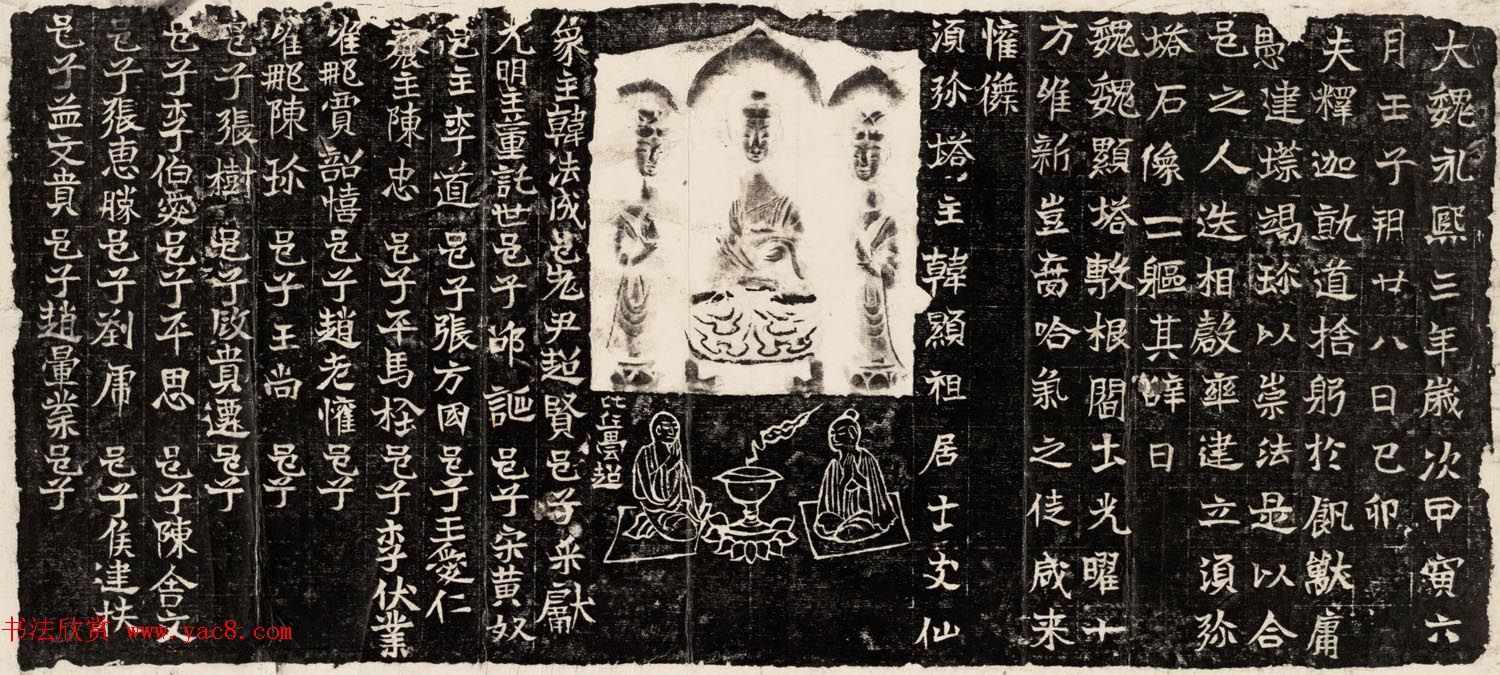 大魏永熙三年歲次甲寅六
月壬子玥廿八日巳卯
夫釋迦就道捨躬於飢獸庸
愚建墖竭珎以崇法是以合
邑之人迭相磬率建立須弥
塔石像一軀其辞曰
魏魏顯塔敷根閻土光曜十
方惟新豈啇哈氣之徒咸来
懽傑
須弥塔主韓顯祖居士文仙
比丘曇超
象主韓法成邑老尹超賢邑子采獻
光明主董託世邑子邰謳邑子宋黄奴
邑主李道邑子張方國邑子王愛仁
齋主陳忠邑子平馬栓邑子李伏業
唯那賈韶憘邑子趙老懽邑子
唯那陳珎邑子王尚邑子
邑子張樹邑子殴貴遷邑子
邑子李伯愛邑子平思邑子陳舍文
邑子張惠勝邑子劉席邑子侯建扶
邑子益文貴邑子趙暈業邑子
书法欣赏 www.yac8.com